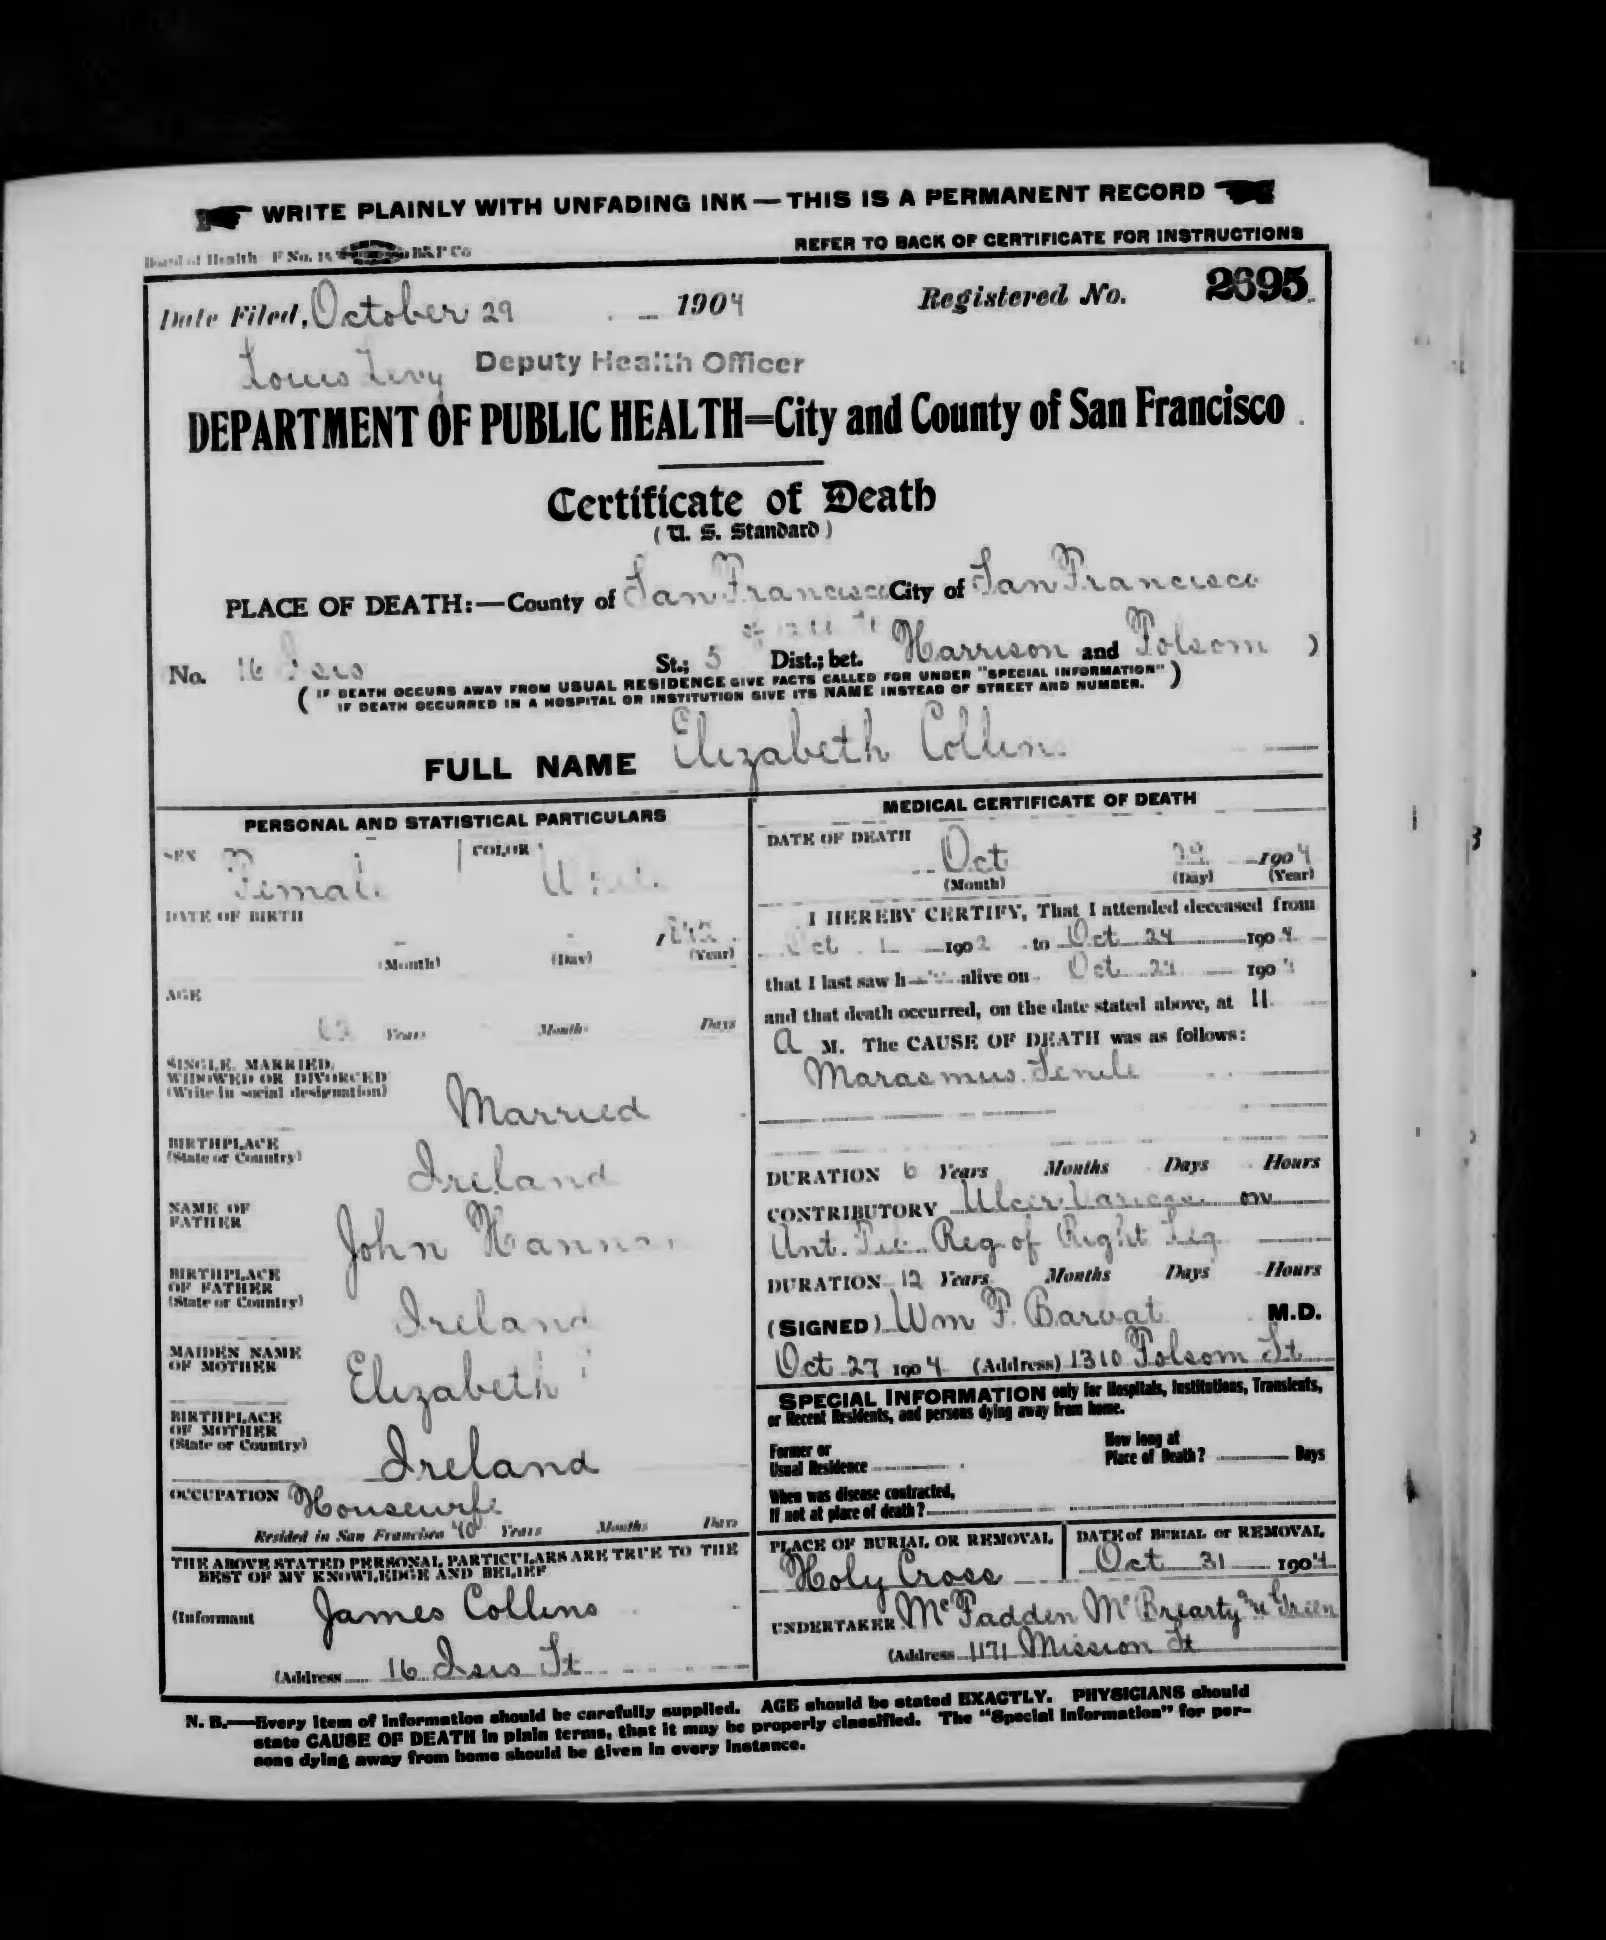 WRITE PLAINLY WITH UNFADING INK — THIS IS A PERMANENT RECORD
Board of Health F No. B&P Co
REFER TO BACK OF CERTIFICATE FOR INSTRUCTIONS
Date Filed, October 29 1904 Registered No. 2695
Louis Levy Deputy Health Officer
DEPARTMENT OF PUBLIC HEALTH=City and County of San Francisco
Certificate of Death
(U. S. Standard)
PLACE OF DEATH:—County of San Francisco City of San Francisco
No. 16 Isis St.; 5 Dist.; bet. Harrison and Folsom )
( IF DEATH OCCURS AWAY FROM USUAL RESIDENCE GIVE FACTS CALLED FOR UNDER "SPECIAL INFORMATION" )
IF DEATH OCCURRED IN A HOSPITAL OR INSTITUTION GIVE ITS NAME INSTEAD OF STREET AND NUMBER.
FULL NAME Elizabeth Collins
PERSONAL AND STATISTICAL PARTICULARS
SEX Female COLOR White
DATE OF BIRTH
(Month) (Day) (Year)
AGE
Years Months Days
SINGLE, MARRIED,
WIDOWED OR DIVORCED
(Write in social designation) Married
BIRTHPLACE
(State or Country) Ireland
NAME OF
FATHER John
BIRTHPLACE
OF FATHER
(State or Country) Ireland
MAIDEN NAME
OF MOTHER Elizabeth
BIRTHPLACE
OF MOTHER
(State or Country) Ireland
OCCUPATION Housewife
Resided in San Francisco 40 Years Months Days
THE ABOVE STATED PERSONAL PARTICULARS ARE TRUE TO THE
BEST OF MY KNOWLEDGE AND BELIEF
(Informant James Collins
(Address 16 Isis St
MEDICAL CERTIFICATE OF DEATH
DATE OF DEATH
Oct 29 1904
(Month) (Day) (Year)
I HEREBY CERTIFY, That I attended deceased from
Oct 1 1902 to Oct 24 1904
that I last saw h alive on Oct 24 1904
and that death occurred, on the date stated above, at 11
A M. The CAUSE OF DEATH was as follows:
Marasmus Senile
DURATION 6 Years Months Days Hours
CONTRIBUTORY Ulcer Varicose on
Ant. Reg. of Right Leg
DURATION 12 Years Months Days Hours
(SIGNED) Wm F. M.D.
Oct 27 1904 (Address) 1310 Folsom St
SPECIAL INFORMATION only for Hospitals, Institutions, Transients,
or Recent Residents, and persons dying away from home.
Former or
Usual Residence
How long at
Place of Death? Days
When was disease contracted,
If not at place of death?
PLACE OF BURIAL OR REMOVAL
Holy Cross
DATE of BURIAL or REMOVAL
Oct 31 1904
UNDERTAKER McFadden McBrearty & Green
(Address 1171 Mission St
N. B.—Every item of information should be carefully supplied. AGE should be stated EXACTLY. PHYSICIANS should
state CAUSE OF DEATH in plain terms, that it may be properly classified. The "Special Information" for per-
sons dying away from home should be given in every instance.